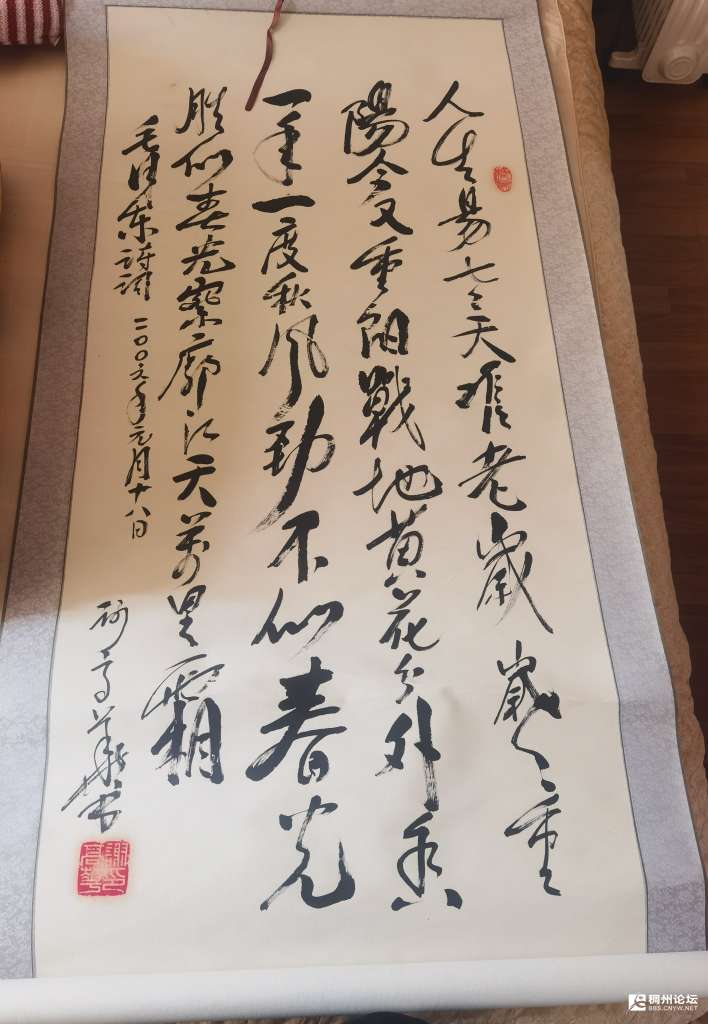 人生易老天难老歲歲重
陽今又重阳戰地黄花分外香
一年一度秋风劲不似春光
胜似春光寥廓江天萬里霜
毛泽东詩词 二〇〇 年元月十八日
谢高華书
謝高華印
稠州论坛
BBS.CNYW.NET